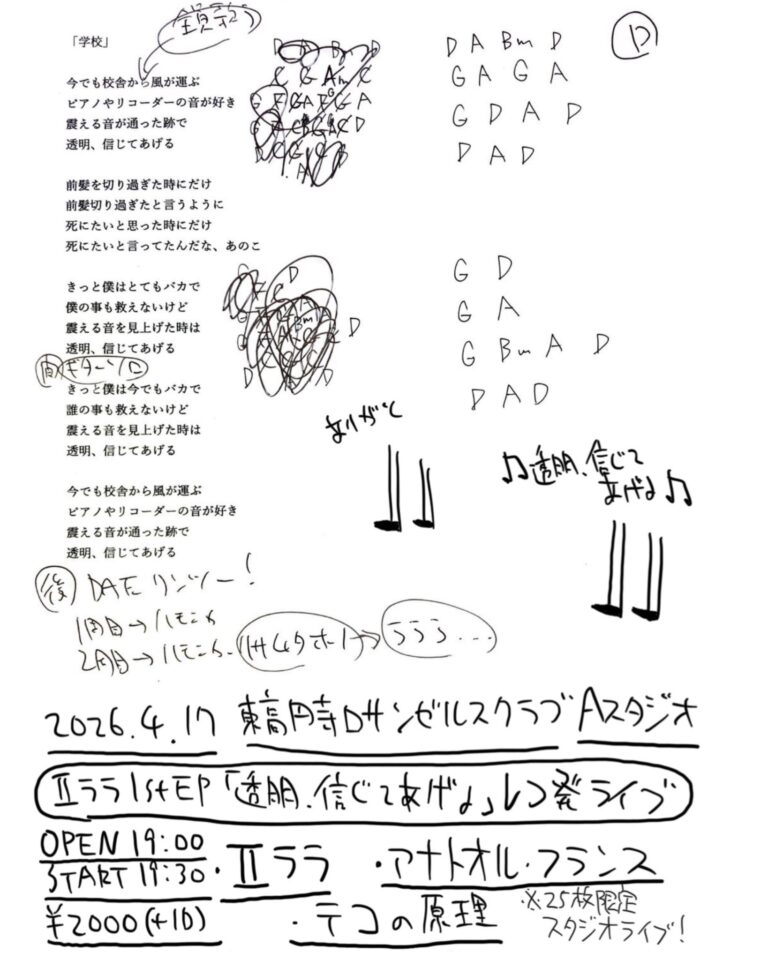 「学校」
今でも校舎から風が運ぶ
ピアノやリコーダーの音が好き
震える音が通った跡で
透明、信じてあげる
前髪を切り過ぎた時にだけ
前髪切り過ぎたと言うように
死にたいと思った時にだけ
死にたいと言ってたんだな、あのこ
きっと僕はとてもバカで
僕の事も救えないけど
震える音を見上げた時は
透明、信じてあげる
間 ギターソロ
きっと僕は今でもバカで
誰の事も救えないけど
震える音を見上げた時は
透明、信じてあげる
今でも校舎から風が運ぶ
ピアノやリコーダーの音が好き
震える音が通った跡で
透明、信じてあげる
D
D A Bm D
G A G A
G D A D
D A D
G D
G A
G Bm A D
D A D
ありがと
♫透明、信じて
あげよ♫
後
1周目→ハモニカ
2周目→ハモニカ
ららら…
2026.4.17 東高円寺Dサンゼルスクラブ Aスタジオ
Ⅱララ1stEP「透明、信じてあげよ」レコ発ライブ
OPEN 19:00
START 19:30
・Ⅱララ ・アナトオル・フランス
¥2000(+1D)
・テコの原理
※25枚限定
スタジオライブ!